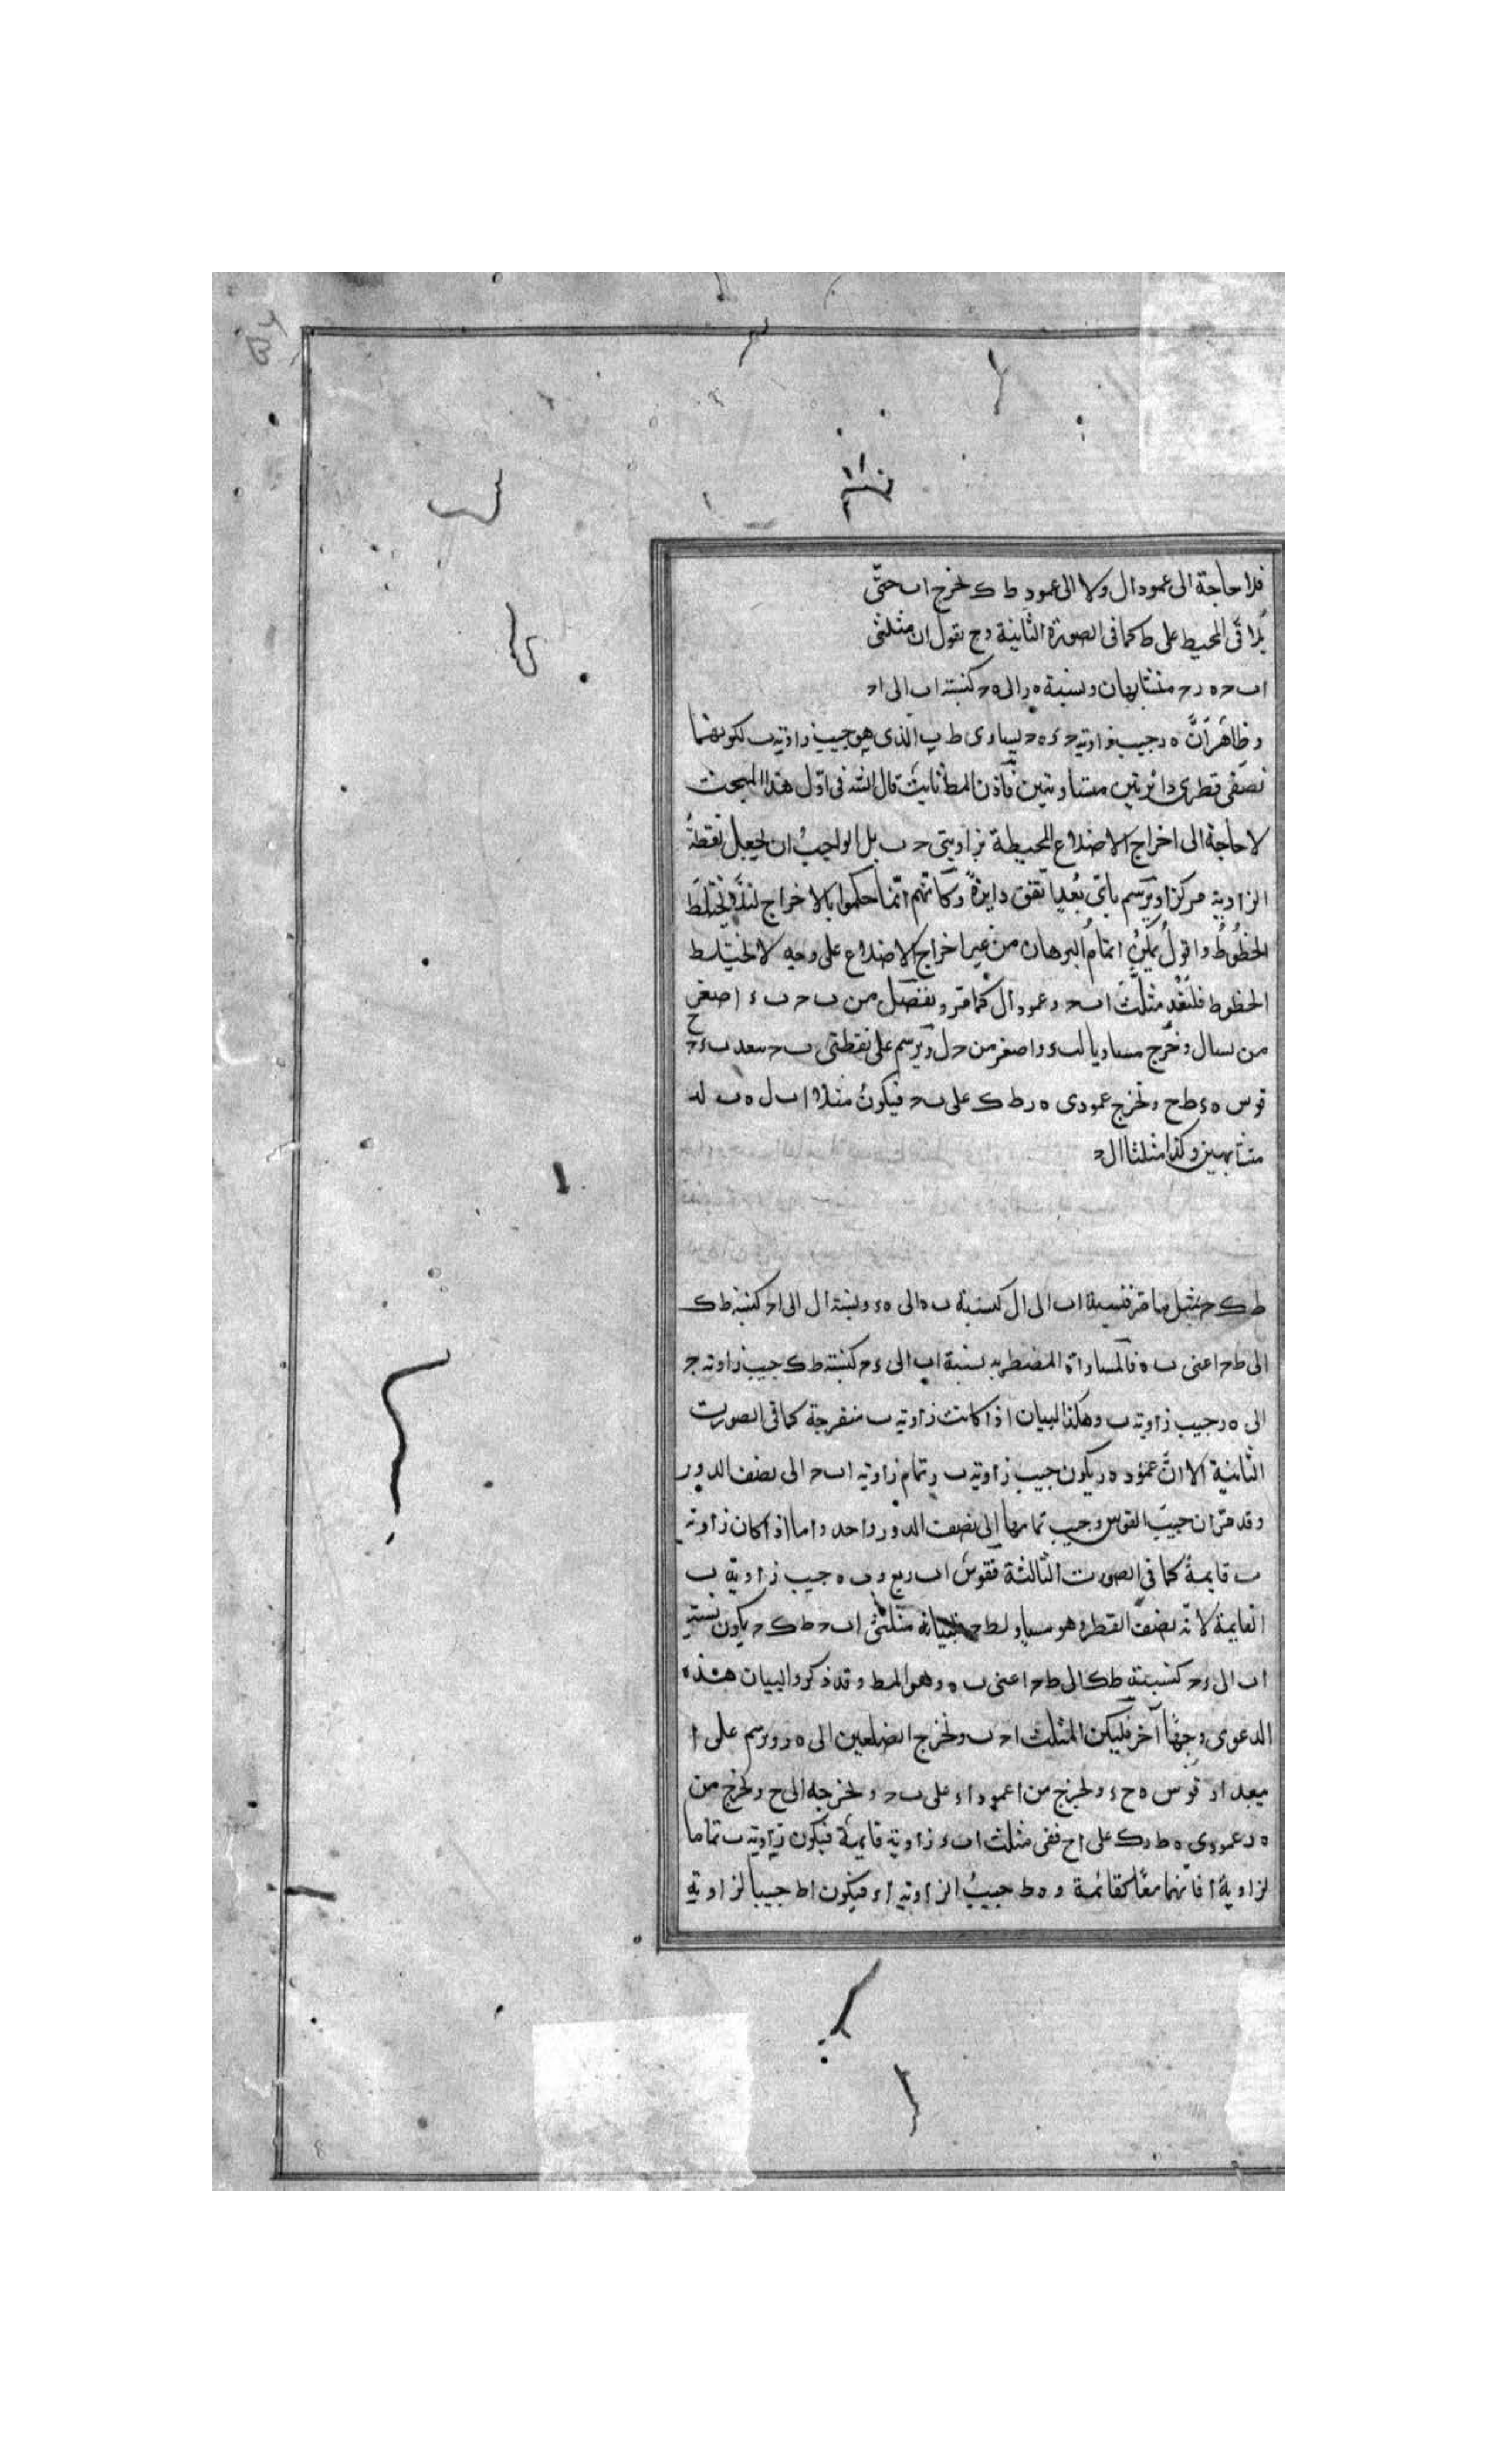 فلا حاجة الى عمود ال ولا الى عمود ط ك نخرج اب حتّى
يُلاقى المحيط على ط كما فى الصورة الثانية وح نقول ان مثلثى
اب ح ه ر ح متشابهان ونسبة ه ر الى ه ح كنسبة اب الى اح
وظاهر أنّ ه ر جيب زاوية ح و ه ح يساوى ط ب الذى هو جيب زاوية ب لكونهما
نصفى قطرى دائرتين متساويتين فاذن المط ثابت قال الش فى اوّل هذا المبحث
لا حاجة الى اخراج الاضلاع المحيطة بزاويتى ح ب بل الواجب ان يجعل نقطة
الزاوية مركزا ويرسم باىّ بُعدٍ اتفق دايرةً وكانّهم انّما حكموا بالاخراج لئلا يختلط
الخطُوطُ واقول يمكن اتمام البرهان من غير اخراج الاضلاع على وجه لا يختلط
الخطوط فلنعد مثلّث اب ح وعمود ال كما مرّ ونفصل من ب ح ب ء اصغر
من ب ا ل ونخرج ح مساويا لب ء واصغر من ح ل ويرسم على نقطتى ب ح ببعد ب ء ح
قوس ه ء ط ح ونخرج عمودى ه ر ط ك على ب ح فيكون مثلثا اب ل ه ب
متشابهين وكذا مثلثا ال ح
ط ك ح بمثل ما مرّ فنسبة اب الى ال كنسبة ب ه الى ه ء ونسبة ال الى اح كنسبة ط ك
الى ط ح اعنى ب ه فالمساواة المضطربه نسبة اب الى ء ح كنسبة ط ك جيب زاوية ح
الى ه ر جيب زاوية ب وهكذا البيان اذا كانت زاوية ب منفرجة كما فى الصورت
الثانية الا انّ عمود ه ر يكون جيب زاوية ب ر تمام زاوية اب ح الى نصف الدور
وقد مرّ ان جيب القوس وجيب تمامها الى نصف الدور واحد واما اذا كان زاوية
ب قايمةً كما فى الصورت الثالثة فقوس اب ربع و ب ه جيب زاوية ب
القايمة لانّه نصف القطر وهو مساو لط ح مثلثى اب ح ط ك ح يكون نسبة
اب الى ء ح كنسبة ط ك الى ط ح اعنى ب ه وهو المط وقد ذكروا لبيان هذه
الدعوى وجهًا آخر فليكن المثلث اح ب ونخرج الضلعين الى ه ر ونرسم على ا
ببعد ا ر قوس ه ح ء ونخرج من ا عمود ا ء على ب ح ونخرجه الى ح ونخرج من
ه ر عمودى ه ط ر ك على اح ففى مثلث اب ء زاوية قايمة فيكون زاوية ب تماما
لزاوية ا فانّهما معًا كقائمة و ه ط جيبُ الزاوية ا ء فيكون اط جيبا لزاوية